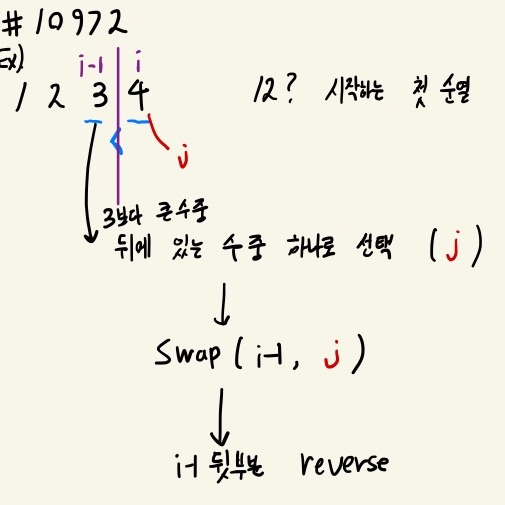 #10972
Ex).
j-1 i
1 2 3 4 12? 시작하는 첫 순열
<
j
3보다 큰수중
뒤에 있는 수중 하나로 선택 (j)
swap(i-1, j)
i-1 뒷부분 reverse